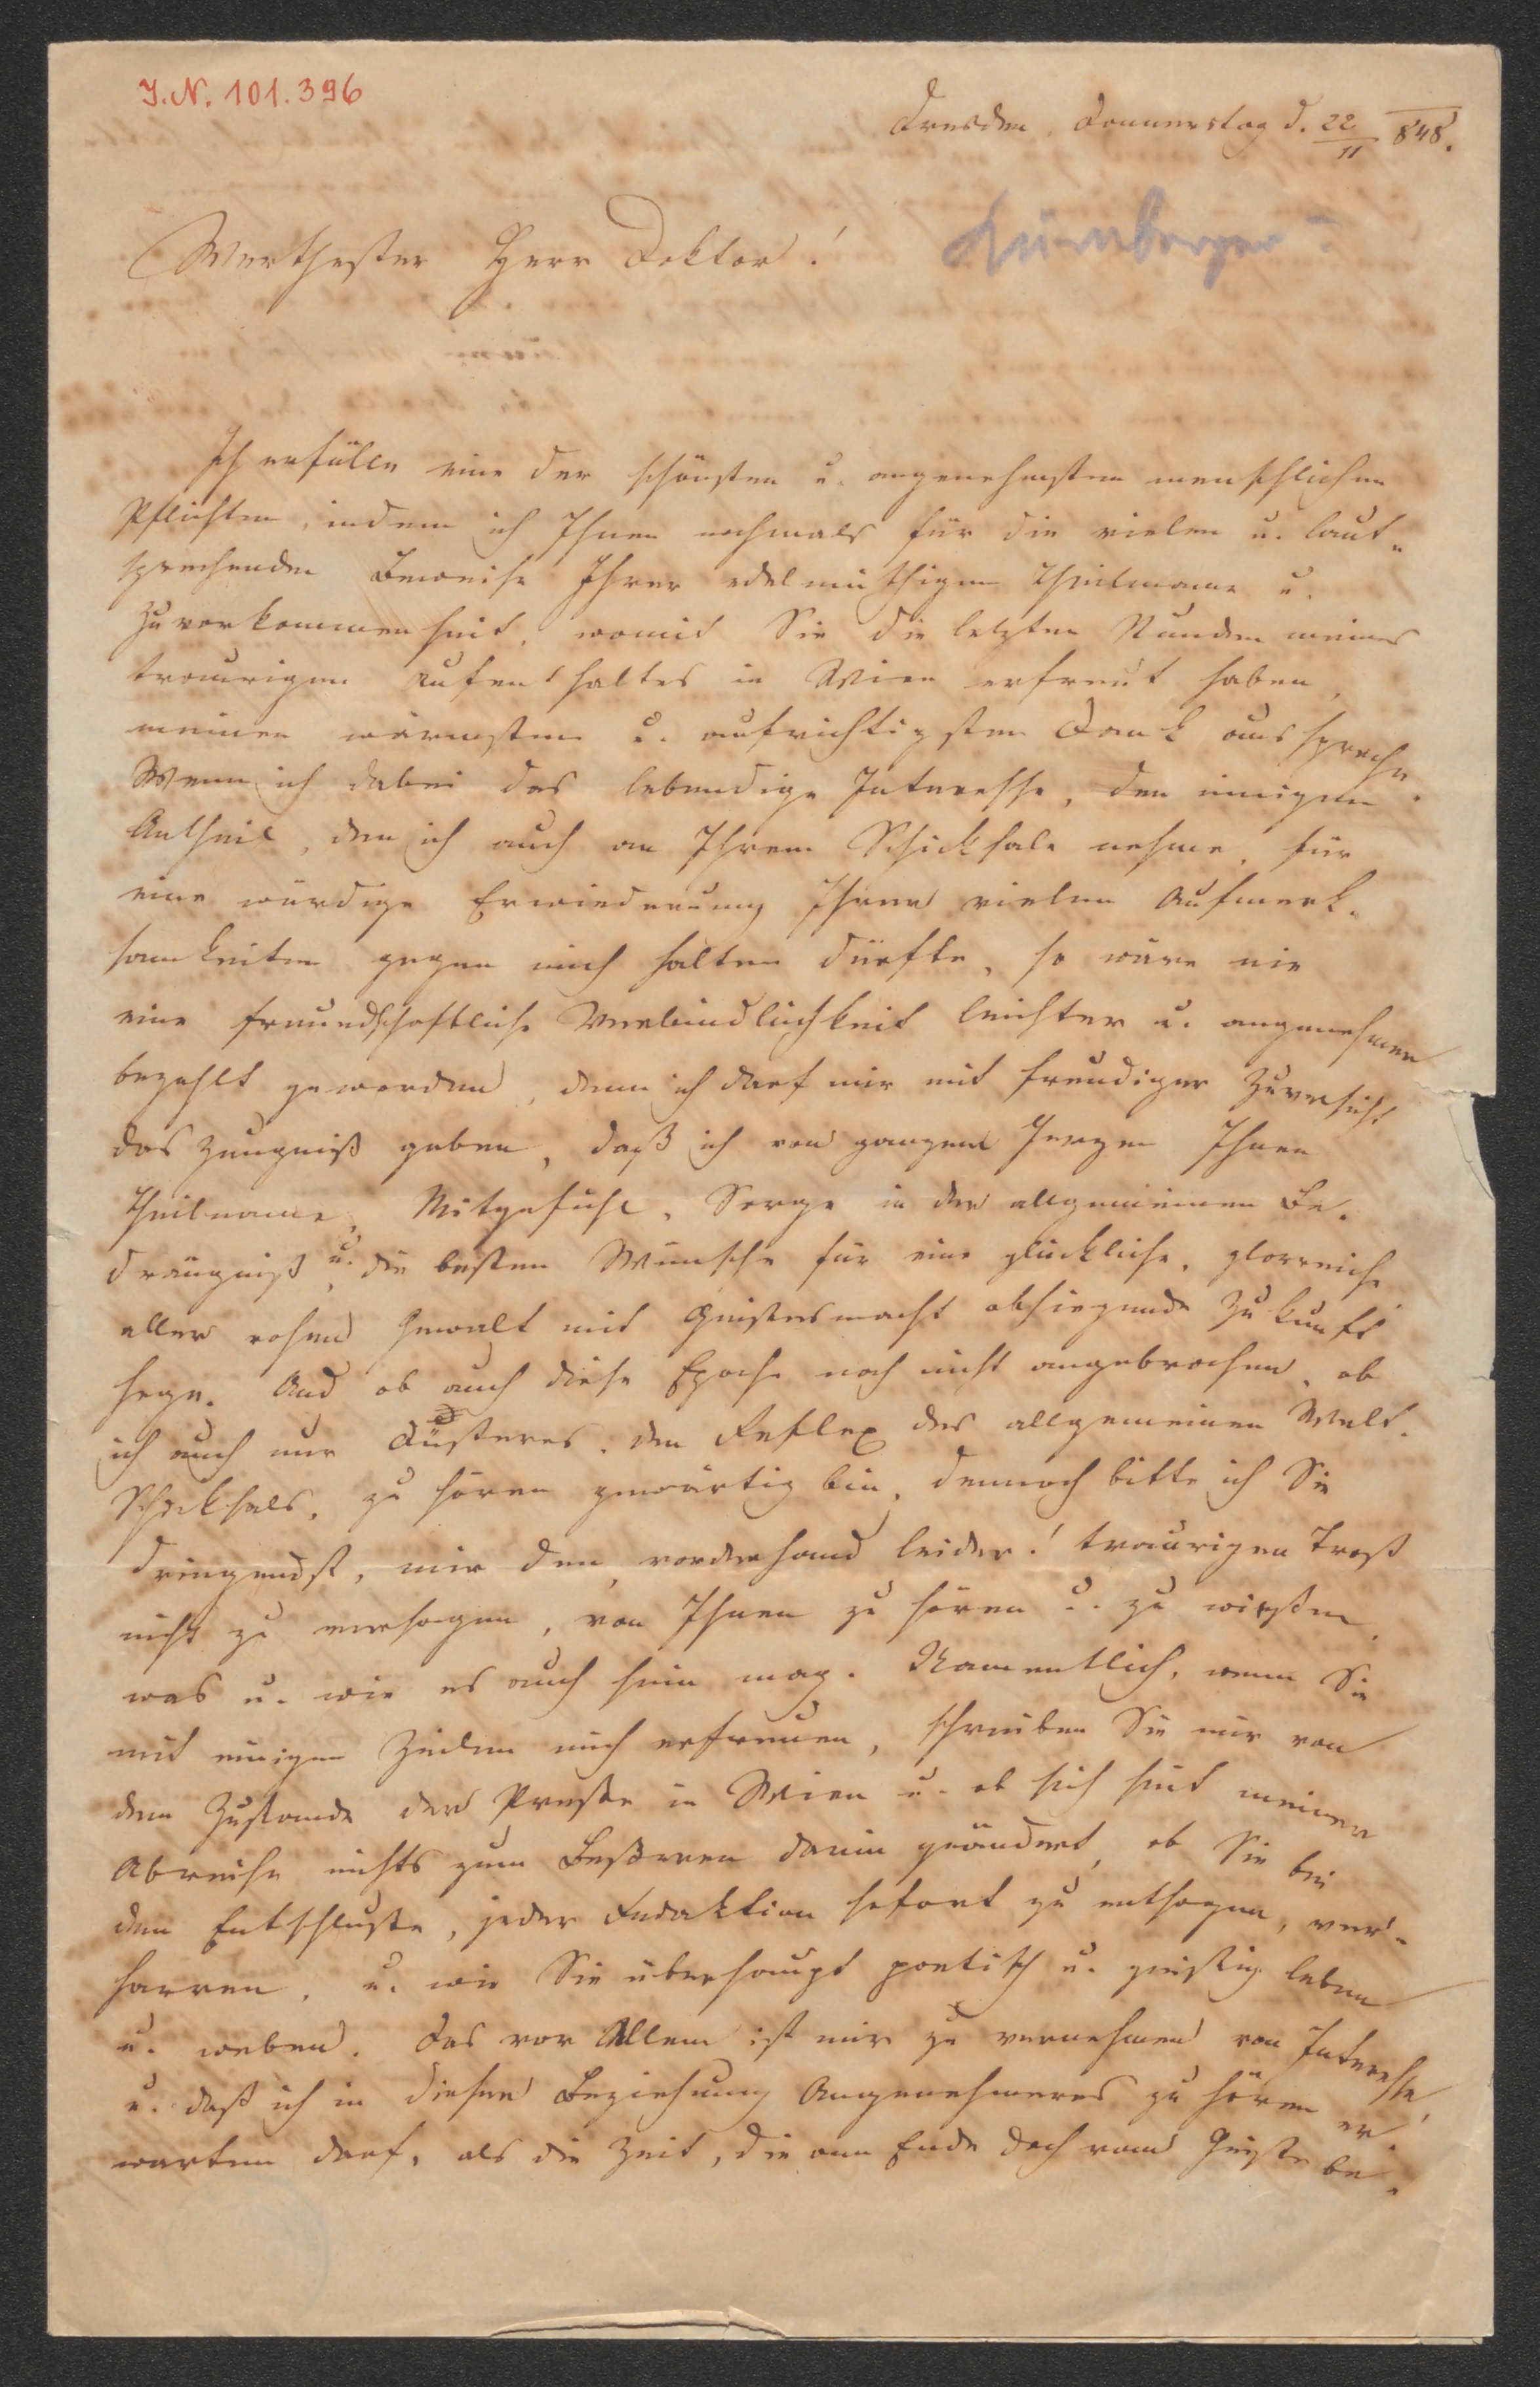 I.N. 101.396
Dresden, Donnerstag d. 22/11 848.
Kürnberger
Werthester Herr Doktor!
Ich erfülle eine der schönsten u. angenehmsten menschlichen
Pflichten, indem ich Ihnen nochmals für die vielen u. laut-
sprechenden Beweise Ihrer edelmüthigen Theilname u.
Zuvorkommenheit, womit Sie die letzten Stunden meines
traurigen Aufenthaltes in Wien erfreut haben,
meinen wärmsten u. aufrichtigsten Dank ausspreche.
Wenn ich dabei das lebendige Interesse, den innigen
Antheil, den ich auch an Ihrem Schicksale nehme, für
eine würdige Erwiederung Ihrer vielen Aufmerk-
samkeiten gegen mich halten dürfte, so wäre nie
eine freundschaftliche Verbindlichkeit leichter u. angenehmer
bezahlt geworden, denn ich darf mir mit freudiger Zuversicht
das Zeugniß geben, daß ich von ganzem Herzen Ihnen
Theilname, Mitgefühl, Sorge in der allgemeinen Be-
drängniß, u. die besten Wünsche für eine glückliche, glorreiche
aller rohen Gewalt mit Geistesmacht obsiegende Zukunft
hege. Und ob auch diese Epoche noch nicht angebrochen, ob
ich auch nur Düsteres, den Reflex des allgemeinen Welt-
Schicksals, zu hören gewärtig bin, dennoch bitte ich Sie
dringendst, mir den, vorderhand leider! traurigen Trost
nicht zu versagen, von Ihnen zu hören u. zu wißen,
was u. wie es auch sein mag. Namentlich, wenn Sie
mit einigen Zeilen mich erfreuen, schreiben Sie mir von
dem Zustande der Preße in Wien u. ob sich seit meiner
Abreise nichts zum Beßeren darin geändert, ob Sie bei
dem Entschluße, jeder Redaktion sofort zu entsagen, ver-
harren, u. wie Sie überhaupt poetisch u. geistig leben
u. weben. Das vor Allem ist mir zu vernehmen von Interesse,
u. daß ich in dieser Beziehung Angenehmeres zu hören er-
warten darf, als die Zeit, die am Ende doch vom Geiste be-